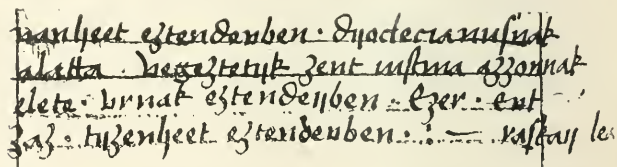 vanheet eztendeuben · dyocleciamusnak
alatta · vegeztetyk zent iustina azzonnak
elete · vrnak eztendeyben · Ezer · ewt
zaz · tyzenheet eztendeuben · : — vastay les